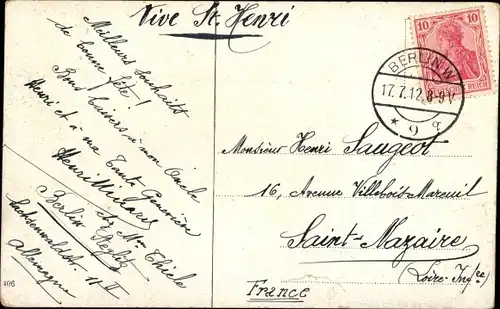 Vive St. Henri
Meilleurs souhaits
de bonne fête!
Bons baisers à mon Oncle
Henri et à ma Tante Geneviève
Henri
chez Mme Thiele
Berlin Steglitz
Sachsenwaldstr. 11 II
Allemagne
406
10 10
REICH
BERLIN W
17.7.12. 8-9V.
* 9 q
Monsieur Henri Saugeot
16, Avenue Villebois-Mareuil
Saint-Nazaire
(Loire-Infre)
France